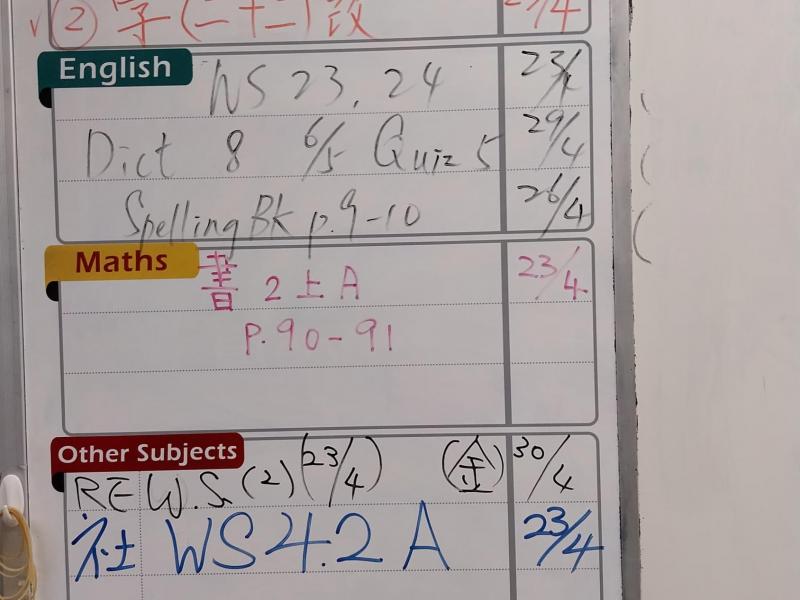 √ ② 字(二十二)改 23/4
English
WS 23, 24 23/4
Dict 8 6/5 Quiz 5 29/4
Spelling Bk p.9-10 26/4
Maths
書 2上A 23/4
P.90-91
Other Subjects
RE W.S.(2)(23/4) (金) 30/4
社 WS4.2A 23/4